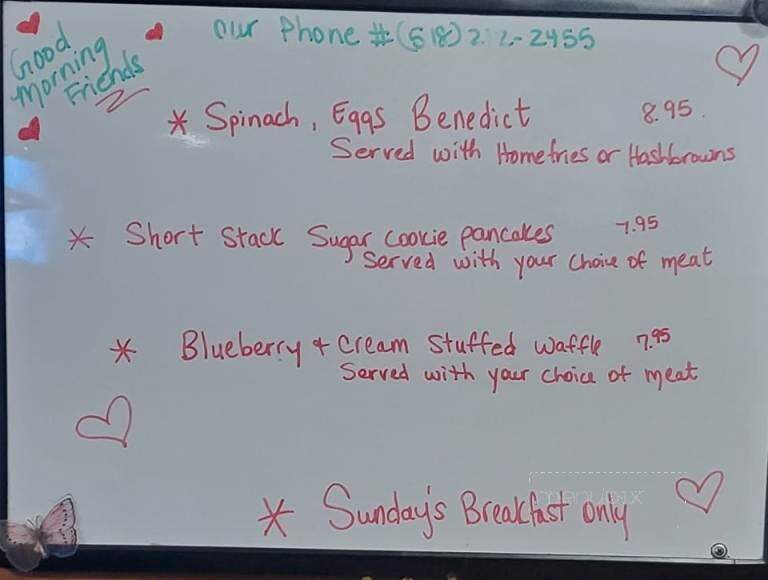 Our Phone # (518) 212-2455
Good
Morning
Friends
* Spinach, Eggs Benedict 8.95
Served with Homefries or Hashbrowns
* Short Stack Sugar Cookie Pancakes 7.95
Served with your choice of meat
* Blueberry + Cream Stuffed Waffle 7.95
Served with your choice of meat
menupix
* Sunday's Breakfast Only